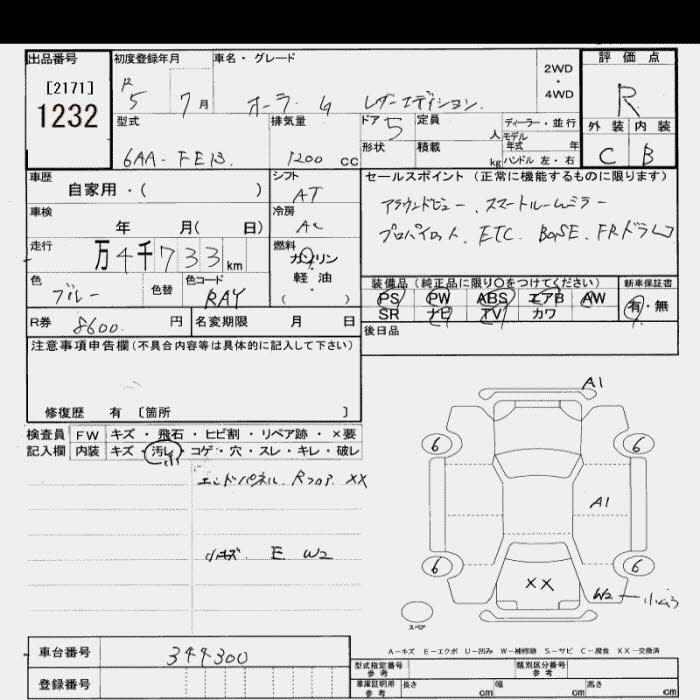 出品番号
[2171]
1232
初度登録年月
R5 7月
車名・グレード
オーラ G レザーエディション
2WD
・
4WD
評価点
R
外装 内装
C B
型式
6AA-FE13
排気量
1200 cc
ドア 5
形状
定員 人
積載 kg
ディーラー・並行
モデル年式 年
ハンドル 左・右
車歴
自家用・( )
シフト
AT
車検
年 月( 日)
冷房
AC
走行
万4千733km
燃料
ガソリン
軽・油
( )
色
ブルー
色替
色コード
RAY
R券 8600 円
名変期限 月 日
セールスポイント(正常に機能するものに限ります)
アラウンドビュー、スマートルームミラー
プロパイロット、ETC、BOSE、FRドラレコ
装備品(純正品に限り○をつけてください)
PS PW ABS エアB AW
SR ナビ TV カワ
新車保証書
有・無
後日品
注意事項申告欄(不具合内容等は具体的に記入して下さい)
修復歴 有 〔箇所 〕
検査員記入欄
FW キズ・飛石・ヒビ割・リペア跡・×要
内装 キズ・汚レ・コゲ・穴・スレ・キレ・破レ
小
エンドパネル、Rフロア XX
小キズ E W2
A1
6
6
A1
6
6
XX
W2
スペア
A-キズ E-エクボ U-凹み W-補修跡 S-サビ C-腐食 XX-交換済
車台番号 344300
登録番号
型式指定番号 参考
類別区分番号 参考
車庫証明用 参考
長さ cm
幅 cm
高さ cm